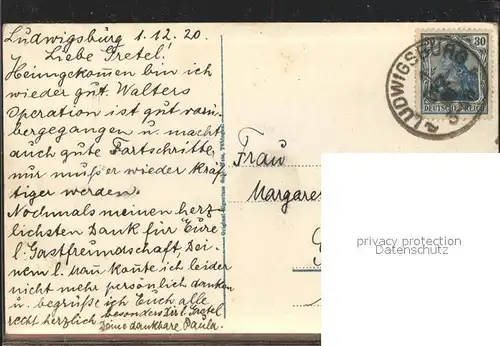 Ludwigsburg 1.12.20.
Liebe Gretel!
Heimgekommen bin ich
wieder gut. Walters
Operation ist gut vorü-
bergegangen u. macht
auch gute Fortschritte,
nur muß er wieder kräf-
tiger werden.
Nochmals meinen herz-
lichsten Dank für Eure
l. Gastfreundschaft, Dei-
nem l. Mann konte ich leider
nicht mehr persönlich danken
u. begrüße ich Euch alle
recht herzlich besonders Dir l. Gretel
Deine dankbare Paula.
30
DEUTSCHES REICH
LUDWIGSBURG
Frau
Margare
privacy protection
Datenschutz